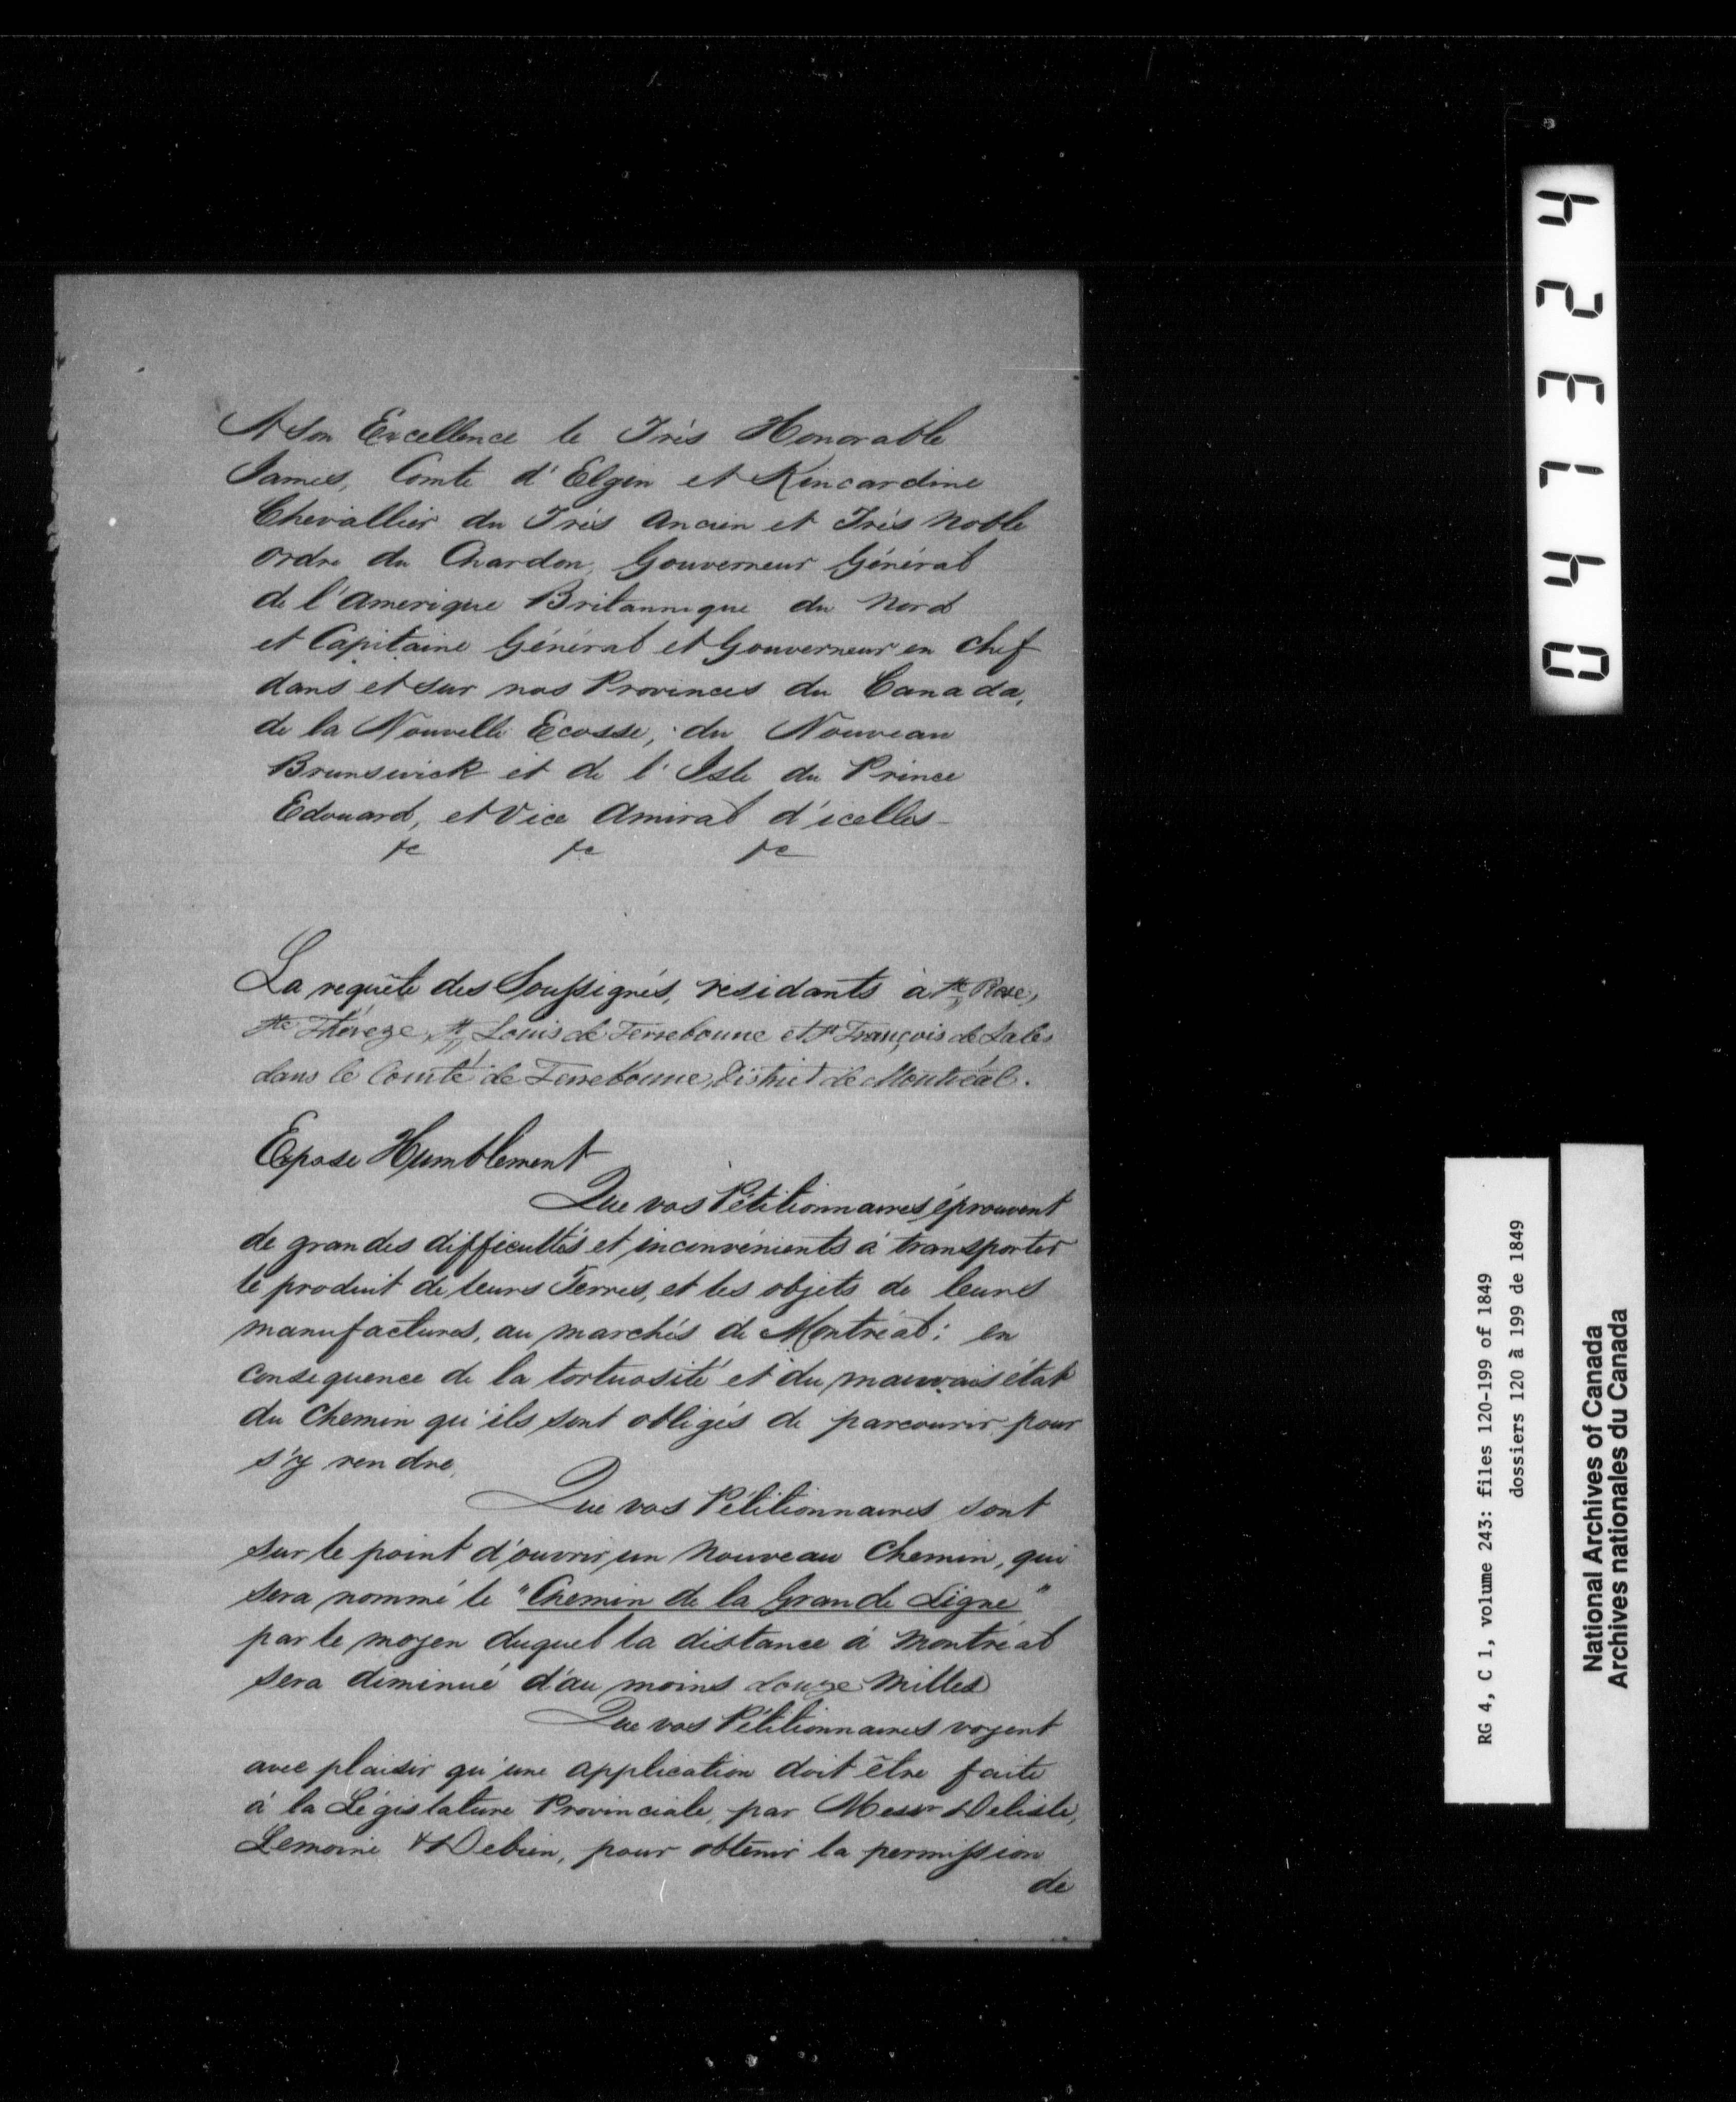 A Son Excellence le Très Honorable
James, Comte d'Elgin et Kincardine
Chevallier du Très Ancien et Très Noble
Ordre du Chardon, Gouverneur Général
de l'Amerique Britannique du Nord
et Capitaine Général et Gouverneur en Chef
dans et sur nos Provinces du Canada,
de la Nouvelle Ecosse, du Nouveau
Brunswick et de l'Isle du Prince
Edouard, et Vice Amiral d'icelles
&c &c &c
La requête des Soussignés, residants à Ste Rose,
Ste Thérèze, St Louis de Terrebonne et St François de Sales
dans le Comté de Terrebonne, District de Montréal.
Expose Humblement
Que vos Pétitionnaires éprouvent
de grandes difficultés et inconvénients à transporter
le produit de leurs Terres, et les objets de leurs
manufactures, au marchés de Montréal; en
consequence de la tortuosité et du mauvais état
du Chemin qu'ils sont obligés de parcourir pour
s'y rendre.
Que vos Pétitionnaires sont
sur le point d'ouvrir un nouveau Chemin, qui
sera nommé le "Chemin de la Grande Ligne"
par le moyen duquel la distance à Montréal
sera diminué d'au moins douze Milles
Que vos Pétitionnaires voyent
avec plaisir qu'une application doit être faite
à la Législature Provinciale, par Messrs Delisle,
Lemoine & Debien, pour obtenir la permission
de
047324
RG 4, C 1, volume 243: files 120-199 of 1849
dossiers 120 à 199 de 1849
National Archives of Canada
Archives nationales du Canada